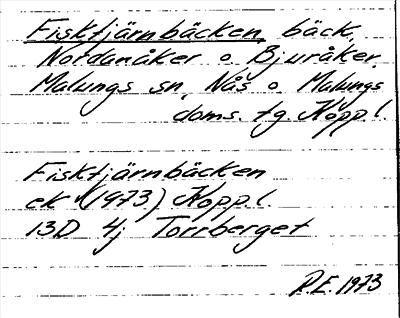 Fisktjärnbäcken, bäck,
Nordanåker o Bjuråker,
Malungs sn, Nås o Malungs
doms. tg. Kopp l.
Fisktjärnbäcken
ek (1973) Kopp.l.
13D 4j Torrberget
P.E. 1973